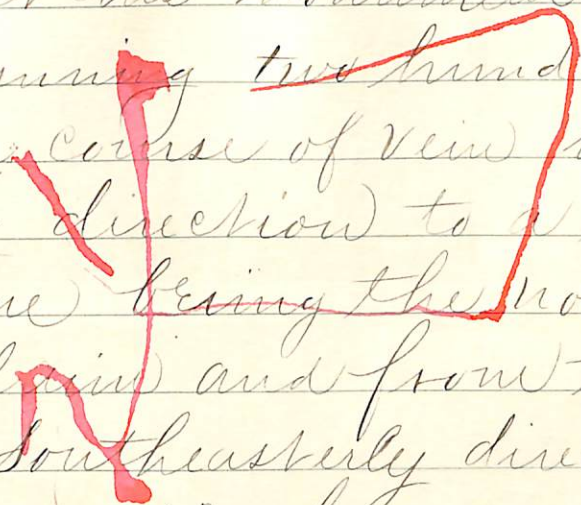 unning two hund
course of vein
direction to a
being the no
laim and from
Southeasterly dire